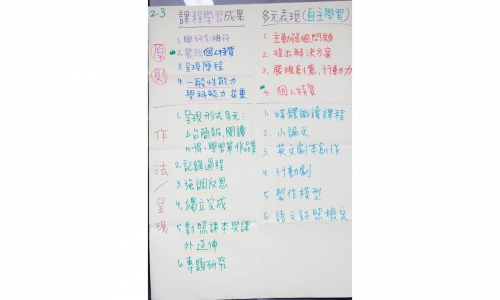 2-3
課程學習成果
多元表現(自主學習)
原則
2.展現個人特質
3.呈現歷程
4.一般性能力
學科能力並重
1.主動發掘問題
2.提出解決方案
3.展現創意、行動力
4.個人特質
作法/呈現
1.呈現形式多元:
上台簡報、閱讀
心得、學習單作品集
2.記錄過程
3.強調反思
4.獨立完成
5.對照課本與課
外延伸
6.專題研究
1.媒體識讀課程
2.小論文
3.英文劇本創作
4.行動劇
5.製作模型
6.語文証照檢定